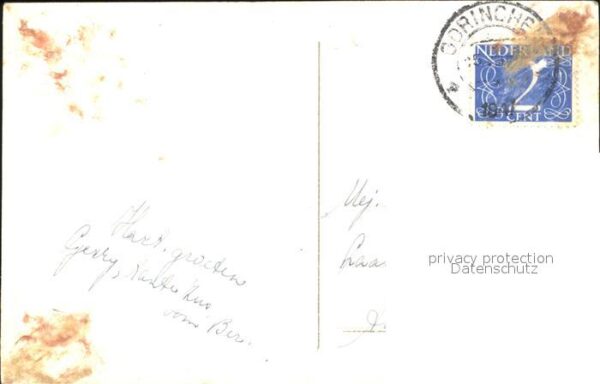 GORINCHE
NEDERLAND
2
CENT
Hart. groeten
Gerry, tante
oom Ber.
Mej.
Laa
privacy protection
Datenschutz